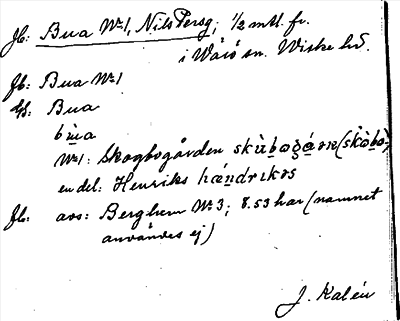 Jb: Bua Nr 1, Nils Persg; 1/2 mtl. fr.
i Värö sn. Wiske hd.
Jb: Bua Nr 1
Uf: Bua
bùa
Nr 1: Skogbogården
en del: Henriks hændrikɷs
Jb: avs: Berghem Nr 3; 8.53 har (namnet
användes ej)
J. Kalén